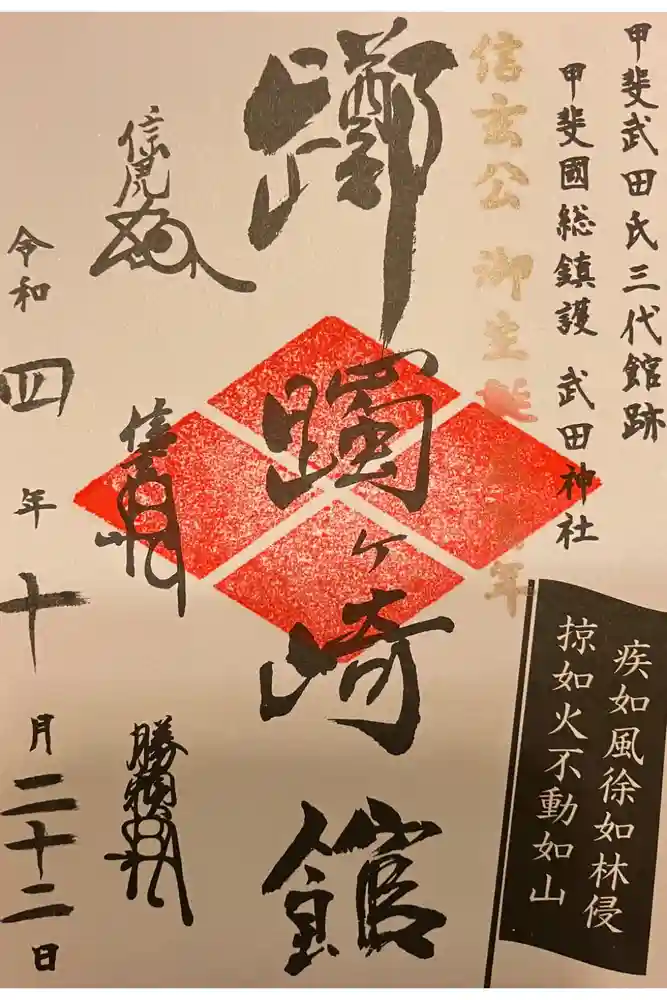 甲斐武田氏三代館跡
甲斐國総鎮護 武田神社
信玄公 御生誕 年
躑躅ヶ崎館
信虎
信玄
勝頼
令和四年十月二十二日
疾如風徐如林侵
掠如火不動如山